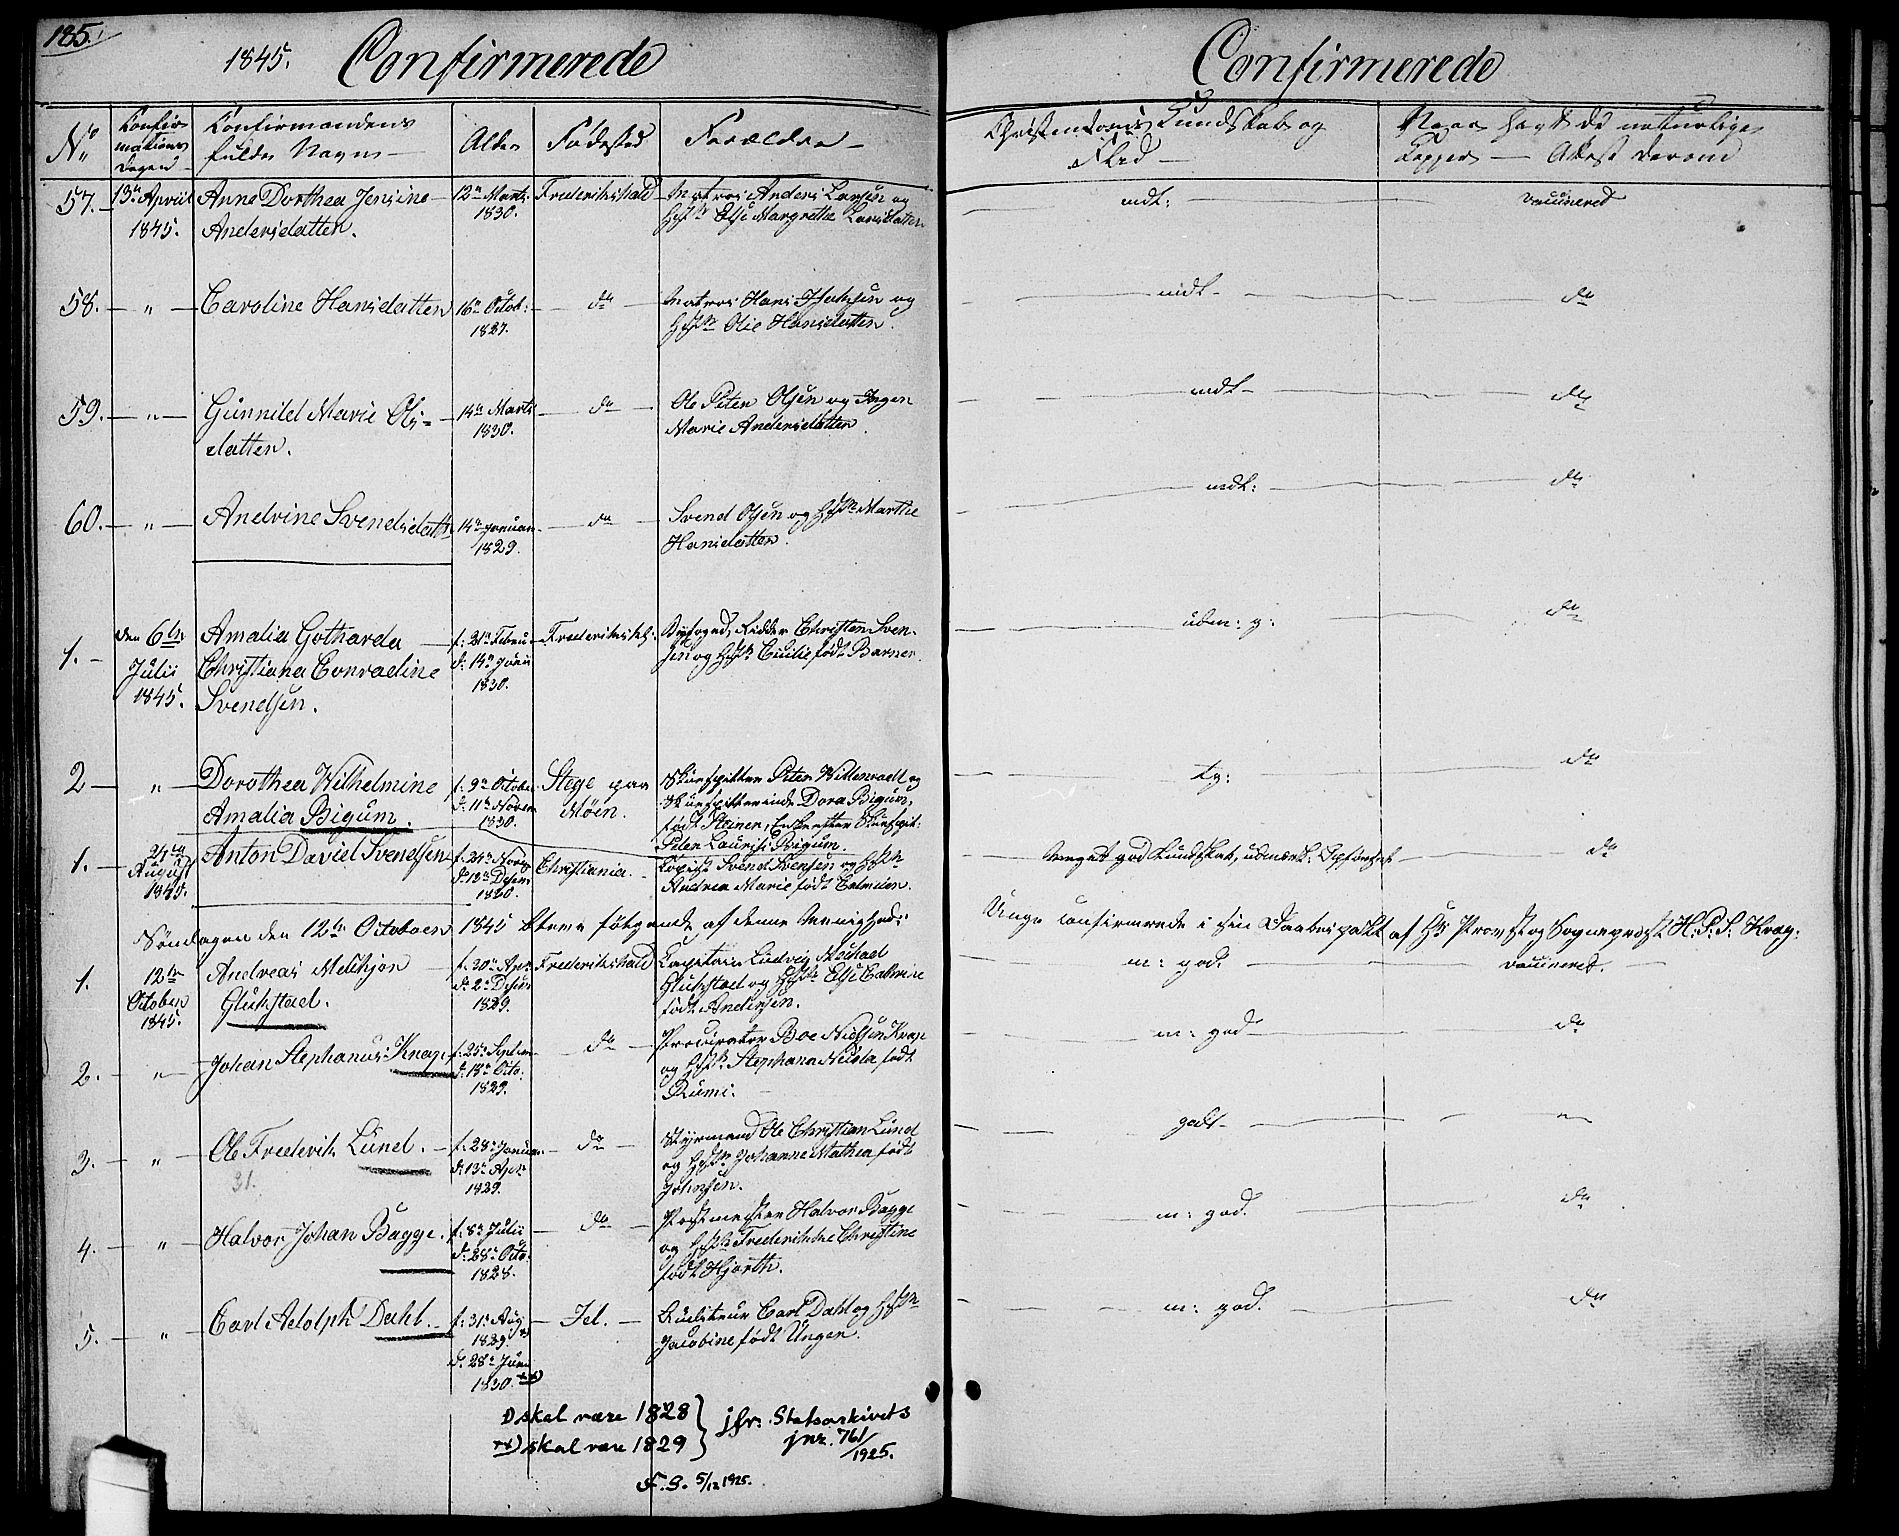 185.
1845. Confirmerede
Confirmerede
No
Confir
mations
Dagen
Confirmandens
fulde Navn
Alder
Fødested
Forældre
Christendoms Kundskab og
Flid
Naar havt de naturlige
Kopper — Attest derom
57. 13de April 1845. Anne Dorthea Jensine
Andersdatter.
12te Marts
1830.
Frederikshald
Matros Anders Larsen og
Hustr Else Margrethe Larsdatter
mdt:
vaccineret
58. " Caroline Hansdatter
16de Octob:
1827.
do
Matros Hans
og
Hustr Olie Hansdatter.
mdt
do
59. " Gunnild Marie Ols=
datter.
14de Marts
1830.
do
Ole Peter Olsen og Inger
Marie Andersdatter
mdt
do
60. " Andrine Svendsdatt
14de Januar
1829.
do
Svend Olsen og Hustr Marthe
Hansdatter.
mdt:
do
1. den 6te
Julii
1845.
Amalia Gotharda
Christiana Conradine
Svendsen.
f: 21de Febru
d: 14de Junii
1830.
Frederikshl:
Byfoged, Ridder Christen Sven-
sen og Hustr Cecilie født Barner.
udm: g:
do
2 " Dorothea Wilhelmine
Amalia Bigum.
f: 9de Octobe
d: 11te Novem
1830.
Stege paa
Møen.
Skuespiller Peter Wittenradt og
Skuespillerinde Dora Bigum,
født Steiner, Enke efter Skuespil:
Peter Laurits Bigum.
tg:
do
1. 24de
August
1845.
Anton David Svendsen
f: 24de Novp
d: 13de Decem
1830.
Christiania.
Kopist Svend Svensen og Hustr
Andrea Marie født
Meget god Kundskab, udmærk. Opførsel
do
Søndagen den 12te October 1845 bleve følgende af denne Menigheds
Unge confirmerede i sin Daabespakt af Hr Provst og Sognepræst H. P. S. Krag:
1. 12te
October
1845.
Andreas Melchior
Glükstad.
f: 30te Apr:
d: 2de Decem
1829.
Frederikshald
Capitain Ludvig Michael
Glükstad og Hustr Else Catrine
født Andersen.
m: god.
vaccineret.
2. " Johan Stephanus Knap.
f: 25de Septem
d: 18de Octo.
1829.
do
Procurator Boe Nielsen Knap
og Hustr Stephana Nicola født
m: god
do
3. " Ole Frederik Lund.
31.
f: 28de Januar
d: 13de Apr:
1829.
do
Styrmand Ole Christian Lund
og Hustr Johanne Mathea født
Johnsen.
godt
"
4. " Halvor Johan Bagge.
f: 8de Julii
d: 28de Octo.
1828.
do
Postmester Halvor Bagge
og Hustr Frederikke Christine
født Hjorth.
m: god.
do
5. " Carl Adolph Dahl.
f: 31te Aug
1829. x)
d: 28de Juni
1830. xx)
Id.
Auditeur Carl Dahl og Hustr
Jacobine født Unger.
m: god.
do
x) skal være 1828
xx) skal være 1829
} jfr. Statsarkivets
jnr. 761/1925.
F. S. 5/12 1925.